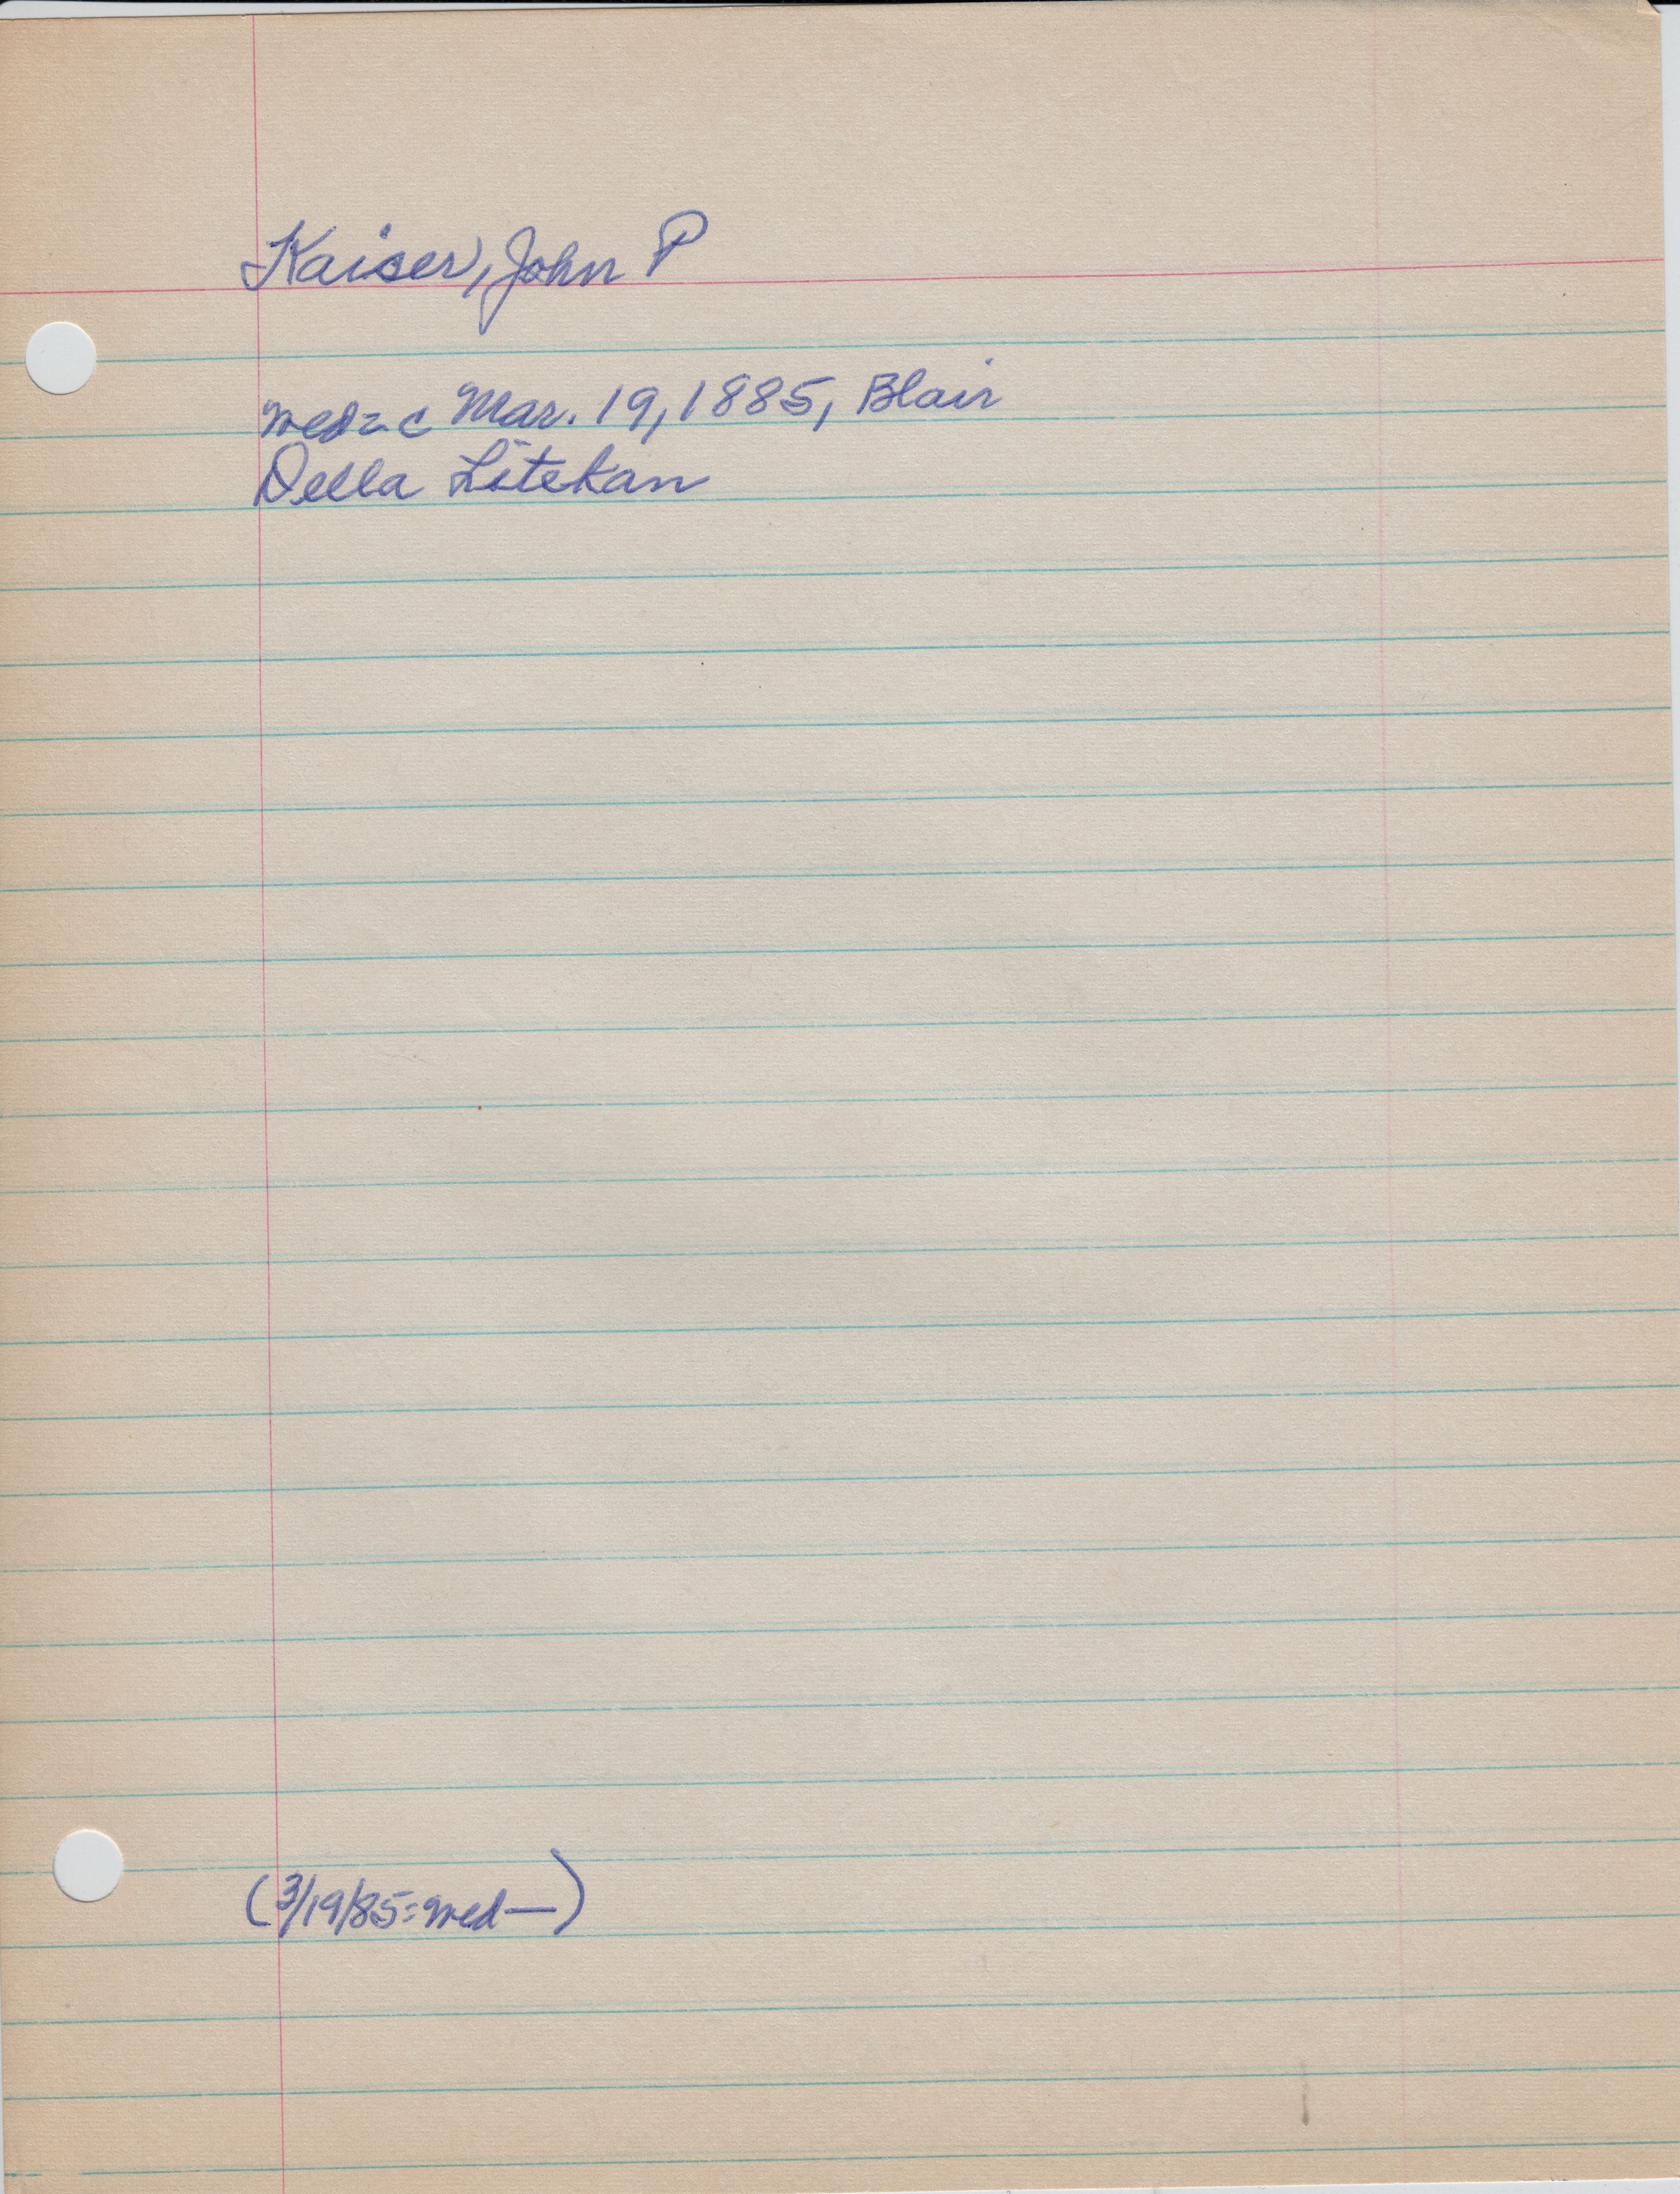 Kaiser, John P
wed = c Mar. 19, 1885, Blair
Della Litekan
(3/19/85=wed—)